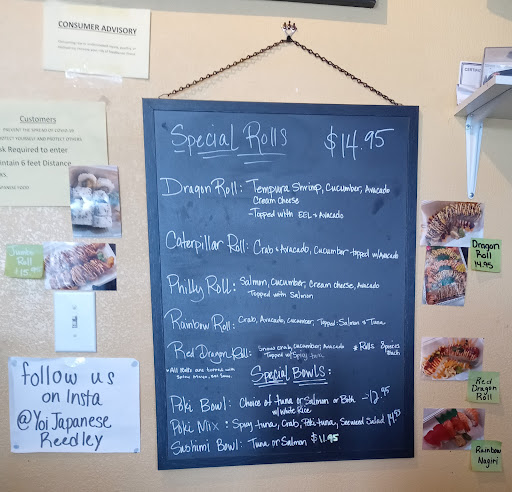 CONSUMER ADVISORY
Customers
PREVENT THE SPREAD OF COVID-19
PROTECT YOURSELF AND PROTECT OTHERS
sk Required to enter
intain 6 feet Distance
ks.
JAPANESE FOOD
Jumbo Roll
$15.95
follow us
on Insta
@YoiJapanese
Reedley
Special Rolls $14.95
Dragon Roll: Tempura Shrimp, Cucumber, Avocado
Cream Cheese
-Topped with EEL & Avocado
Caterpillar Roll: Crab & Avocado, Cucumber -topped w/Avocado
Philly Roll: Salmon, Cucumber, Cream cheese, Avocado
Topped with Salmon
Rainbow Roll: Crab, Avocado, cucumber, Topped: Salmon & Tuna
Red Dragon Roll: Snow crab, cucumber, Avocado
Topped w/Spicy tuna
* Rolls 8 pieces
Each
*All Rolls are topped with
Special Bowls:
Poki Bowl: Choice of tuna or Salmon or Both -12.95
w/ White Rice
Poki Mix: Spicy tuna, Crab, Poki tuna, Seaweed Salad 14.95
Sashimi Bowl: Tuna or Salmon $11.95
Dragon
Roll
14.95
Red
Dragon
Roll
Rainbow
Nagiri